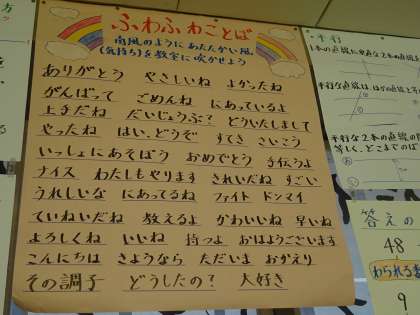 ふわふわことば
南風のようにあたたかい風
(気持ち)を教室に吹かせよう
ありがとう やさしいね よかったね
がんばって ごめんね にあっているよ
上手だね だいじょうぶ? どういたしまして
やったね はい、どうぞ すてき さいこう
いっしょにあそぼう おめでとう 手伝うよ
ナイス わたしもやります きれいだね すごい
うれしいな にあってるね ファイト ドンマイ
ていねいだね 教えるよ かわいいね 早いね
よろしくね いいね 持つよ おはようございます
こんにちは さようなら ただいま おかえり
その調子 どうしたの? 大好き
方
平行
平行な2本の直線の
等しく、どこまでのば
答えの
48
わられる数
9